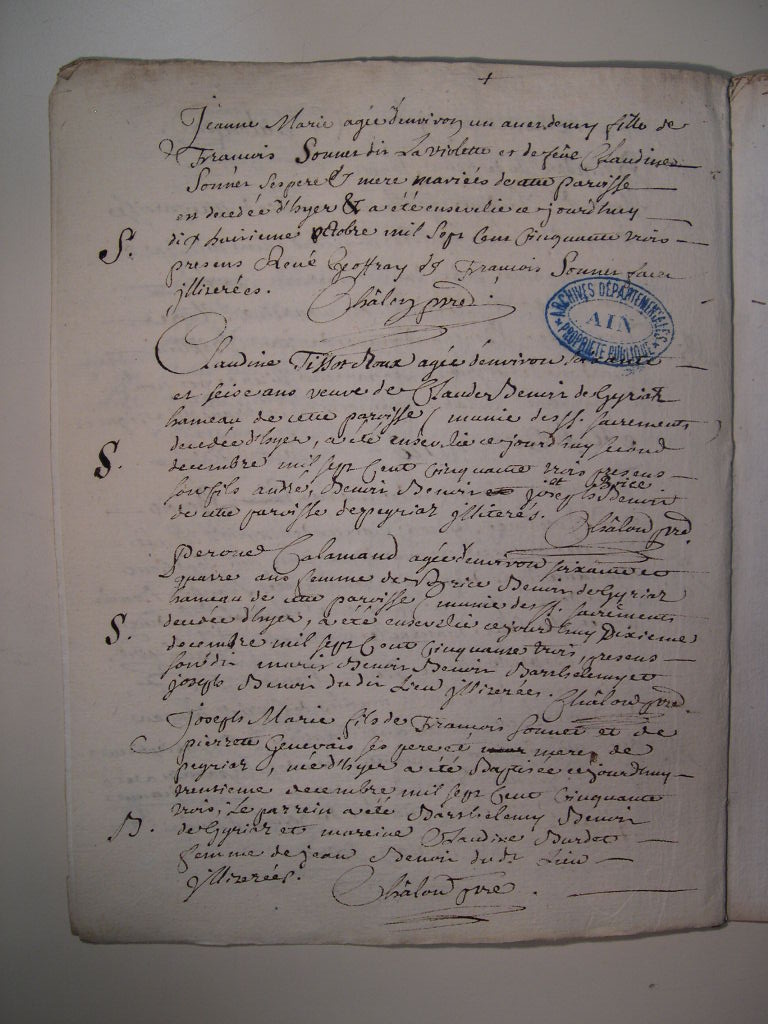 +
Jeanne Marie agée d'environ un an et demy fille de
François Sonnet dit La violette et de feüe Claudine
Sonnet ses pere & mere mariés de cette paroisse
est decedée d'hyer & a été ensevelie ce jourdhuy
dix huitieme octobre mil sept cent cinquante trois
S.
presens René Geoffray & François Sonnet
illiterées. Châlon pre
ARCHIVES DÉPARTEMENTALES
AIN
PROPRIÉTÉ PUBLIQUE
Claudine Tissot Roux agée d'environ soixante
et seise ans veuve de Claude Benoit de Gyriat
hameau de cette paroisse munie des SS. sacrements
decedée d'hyer, a été ensevelie ce jourdhuy second
S.
decembre mil sept cent cinquante trois presens
son fils andré, Benoit Benoit et joseph Brice Benoit
de cette paroisse de peyriat illiterés. Châlon pre
Peronne Calamand agée d'environ soixante et
quatre ans femme de Brice Benoit de Gyriat
hameau de cette paroisse munie des SS. sacrements
decedée d'hyer, a été ensevelie ce jourdhuy Dixieme
S.
decembre mil sept cent cinquante trois, presens
sondit maris Benoit Benoit Barthelemy et
joseph Benoit dudit Lieu illiterées. Châlon pre
Joseph Marie fils de François sonnet et de
pierrette Genevais ses pere et mere de
peyriat, née d'hyer a été Baptisée ce jourdhuy
trentieme decembre mil sept cent cinquante
trois, Le parrein a été Barthelemy Benoit
B.
de Gyriat et mareine Claudine Burdet
femme de jean Benoit dudt Lieu
illiterées. Châlon pre